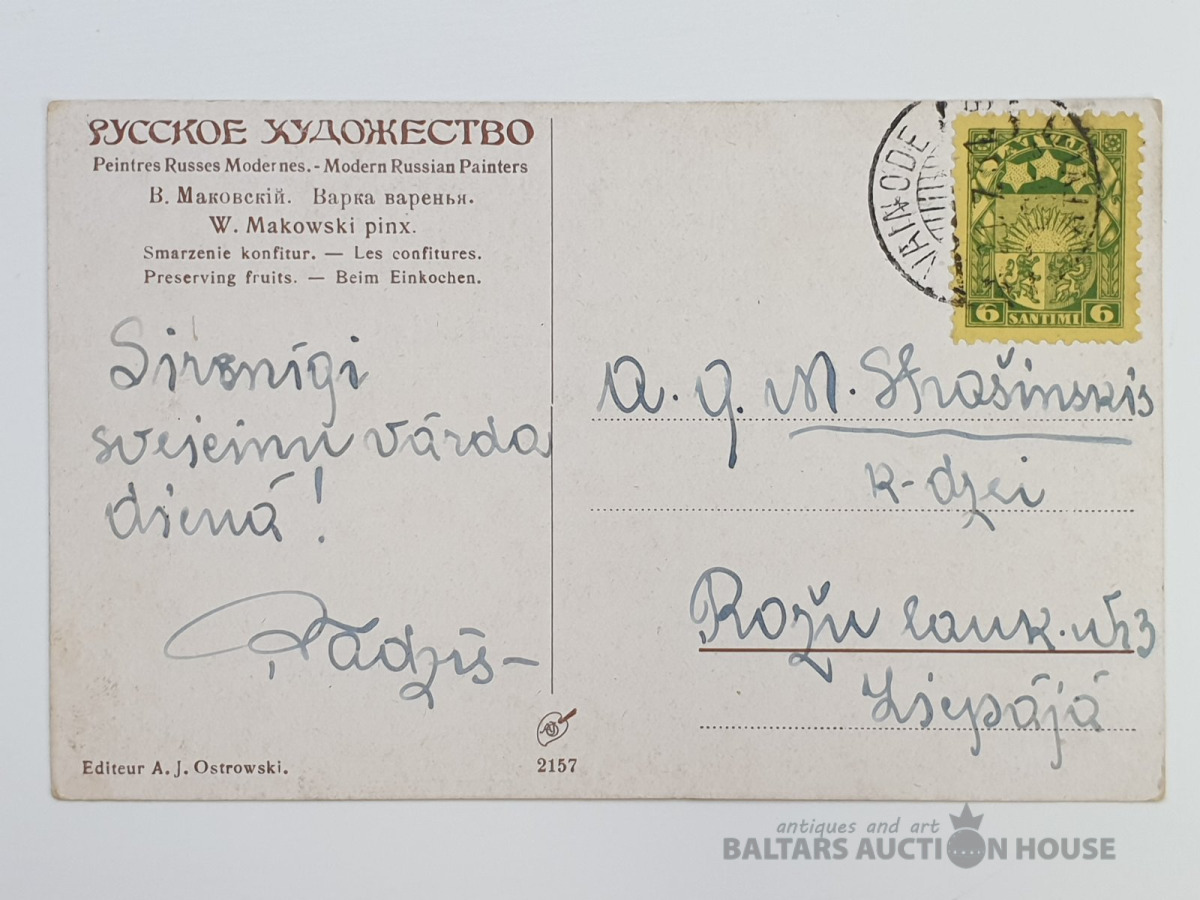 РУССКОЕ ХУДОЖЕСТВО
Peintres Russes Modernes. - Modern Russian Painters
В. Маковскій. Варка варенья.
W. Makowski pinx.
Smarzenie konfitur. — Les confitures.
Preserving fruits. — Beim Einkochen.
Sirsnīgi
sveicinu vārda
dienā!
Editeur A. J. Ostrowski.
2157
VAIŅODE
LATVIJA
6 SANTIMI 6
A. g. M. Strašinskis
k-dzei
Rožu lauk. № 3
Liepājā
antiques and art
BALTARS AUCTION HOUSE